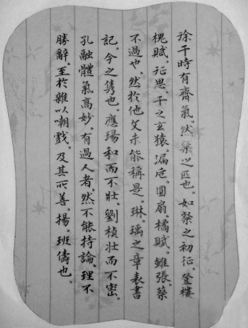 徐干時有齊氣。然粲之匹也。如粲之初征、登樓、
槐賦、征思。干之玄猿、漏卮、圓扇、橘賦、雖張、蔡
不過也。然於他文未能稱是。琳、瑀之章表書
記、今之雋也。應瑒和而不壯。劉楨壯而不密。
孔融體氣高妙、有過人者。然不能持論、理不
勝辭。至於雜以嘲戲。及其所善、揚、班儔也。